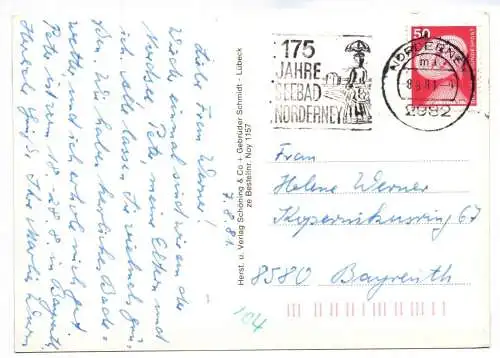 Liebe Frau Werner!
7.8.81
Woche einmal sind wir an der
Nordsee. Peter, meine Eltern und
ich. Alle lassen Sie vielmals grü-
ßen. Wir haben herrliches Bade-
wetter und ich erhole mich gut.
Peter ist vom 18. - 28. in Bayreuth.
Herzliche Grüße Ihre
Herst. u. Verlag Schöning & Co + Gebrüder Schmidt - Lübeck
ze Bestellnr. Noy 1157
175
JAHRE
SEEBAD
NORDERNEY
NORDERNEY
2982
50
Frau
Helene Werner
Kopernikusring 67
8580 Bayreuth
104